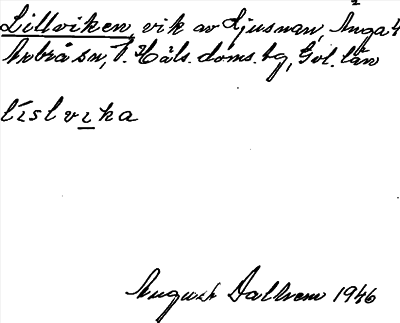 Lillviken, vik av Ljusnan, Ånga 4
Arbrå sn, V. Häls. doms. bg, Gvl. län
líslvika
August Dallrem 1946